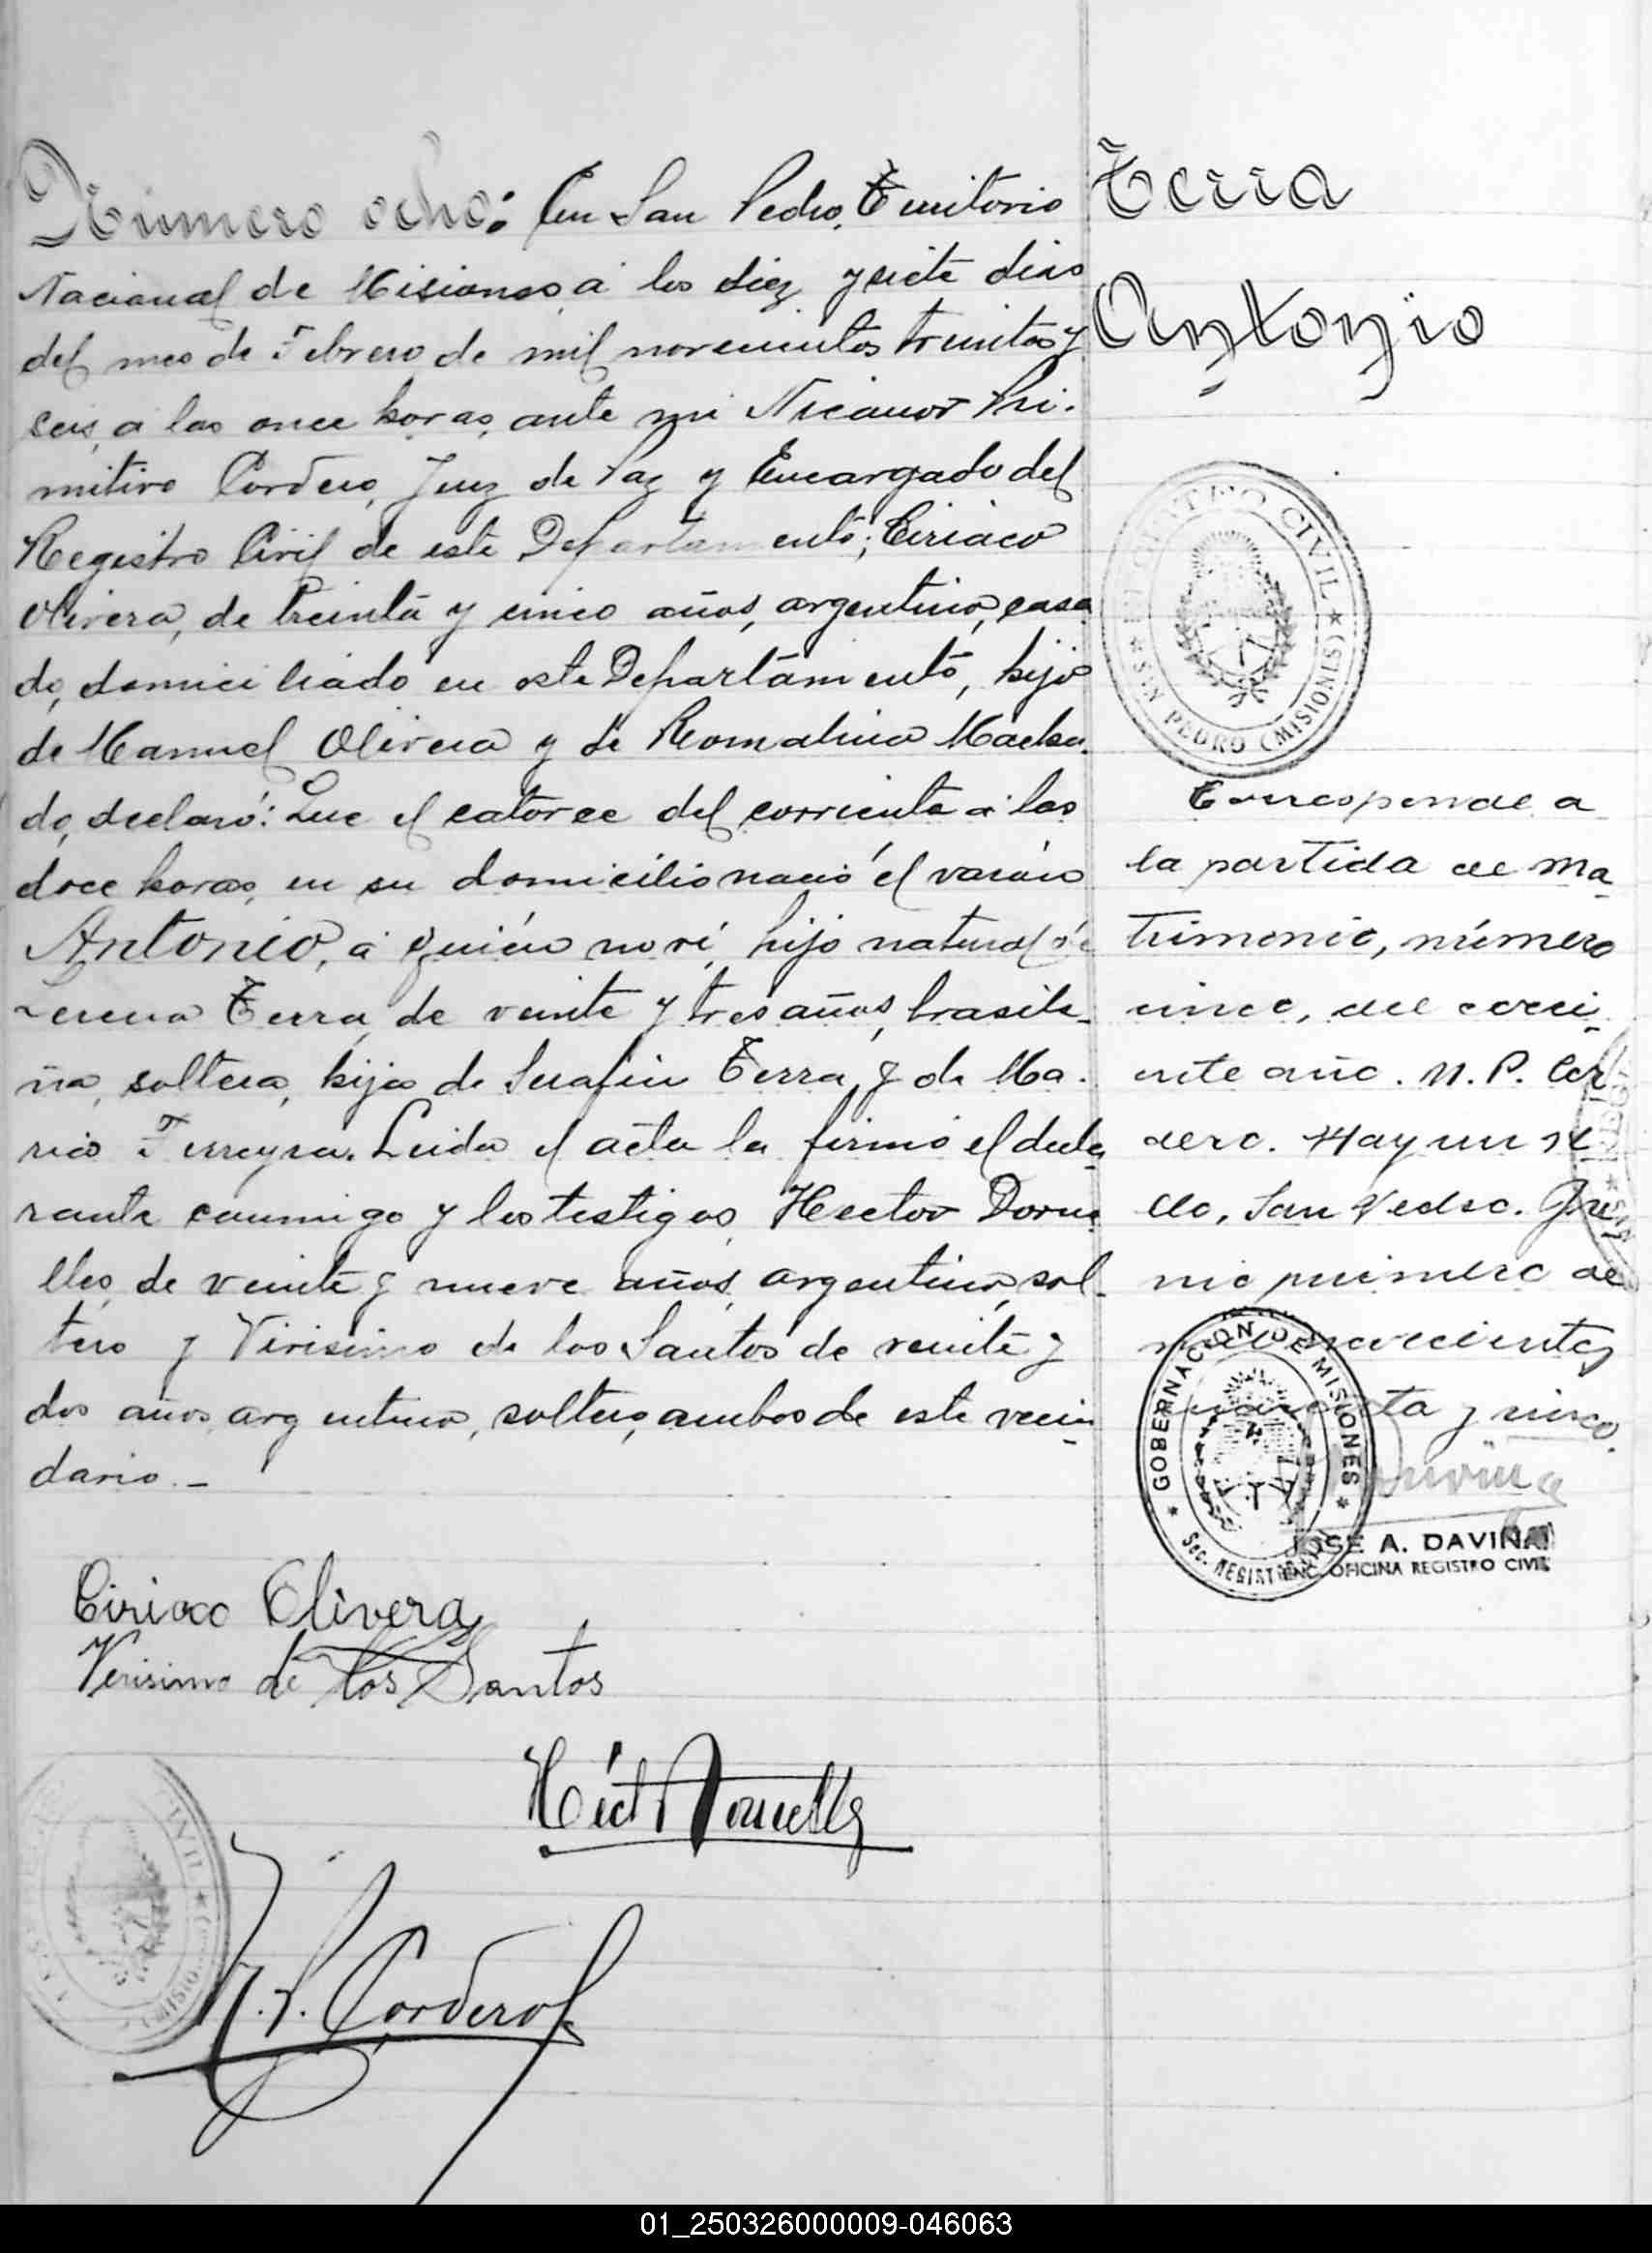 Número ocho: En San Pedro, Territorio
Nacional de Misiones, a los diez y siete dias
del mes de Febrero de mil novecientos treinta y
seis, a las once horas, ante mi Nicanor Pri-
mitivo Cordero, Juez de Paz y Encargado del
Registro Civil de este Departamento; Ciriaco
Olivera, de treinta y cinco años, argentino, casa
do, domiciliado en este Departamento, hijo
de Manuel Olivera y de Romalina Macha-
do, declaró: Que el catorce del corriente a las
doce horas, en su domicilio nació el varón
Antonio, a quién no ví, hijo natural de
Terra, de veinte y tres años, brasile-
ña, soltera, hija de Serafin Terra, y de Ma-
ria Ferreyra. Leida el acta la firmó el decla
rante conmigo y los testigos, Hector Dorne
lles, de veinte y nueve años, argentino, sol-
tero y Virisimo de los Santos de veinte y
dos años, argentino, soltero, ambos de este vecin
dario.-
Ciriaco Olivera
Verisimo de los Santos
Héct Dornells
N. P. Cordero
CIVIL
Terra
Antonio
REGISTRO CIVIL
SAN PEDRO (MISIONES)
Corresponde a
la partida de ma
trimonio, número
cinco, del corri-
ente año. N. P. Cor
dero. Hay un se
llo, San Pedro. Ju
nio primero de
mil novecientos
cuarenta y cinco.
GOBERNACION DE MISIONES
JOSE A. DAVIÑA
ENC. OFICINA REGISTRO CIVIL
01_250326000009-046063